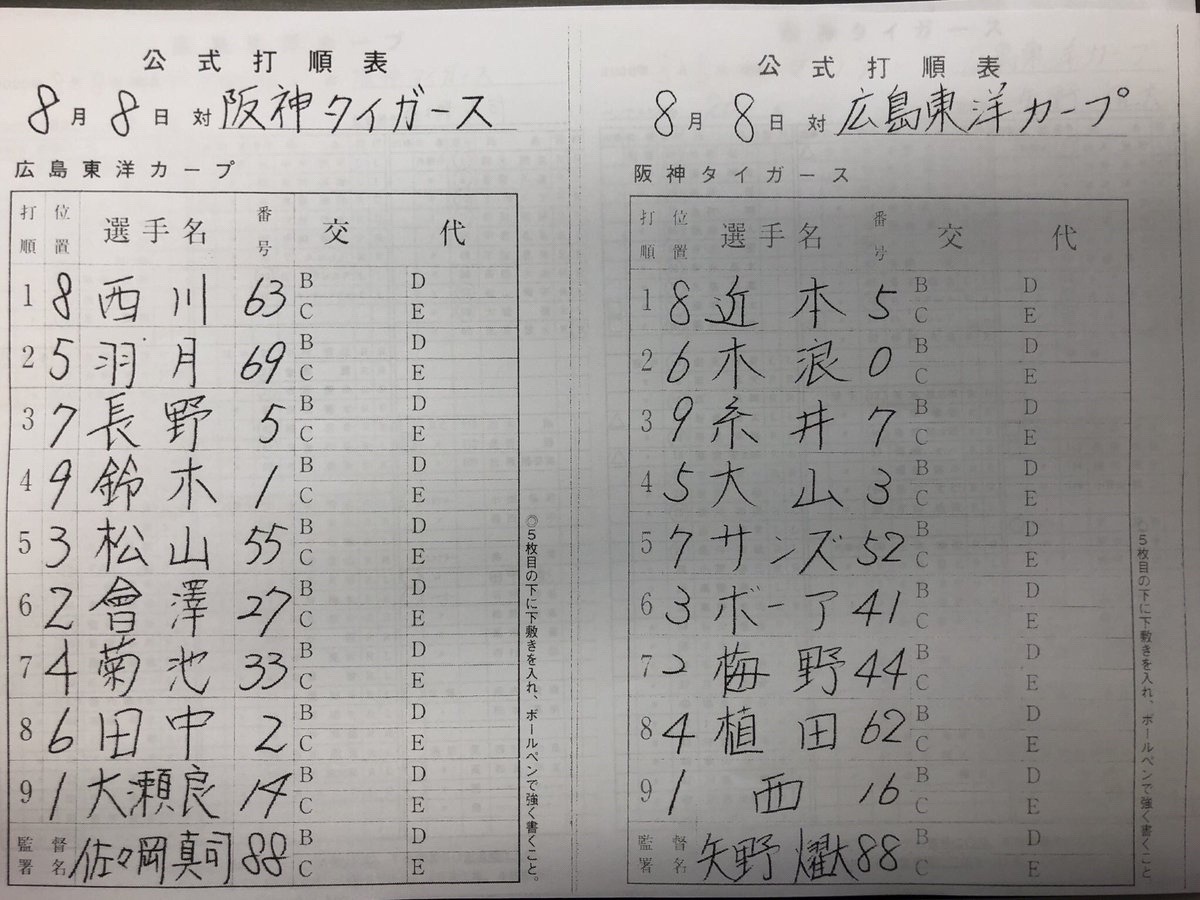 公式打順表
8月8日 対 阪神タイガース
広島東洋カープ
打順 位置 選手名 番号 交代
1 8 西川 63 B D
C E
2 5 羽月 69 B D
C E
3 7 長野 5 B D
C E
4 9 鈴木 1 B D
C E
5 3 松山 55 B D
C E
6 2 會澤 27 B D
C E
7 4 菊池 33 B D
C E
8 6 田中 2 B D
C E
9 1 大瀬良 14 B D
C E
監督署名 佐々岡真司 88 B D
C E
◎5枚目の下に下敷きを入れ、ボールペンで強く書くこと。
公式打順表
8月8日 対 広島東洋カープ
阪神タイガース
打順 位置 選手名 番号 交代
1 8 近本 5 B D
C E
2 6 木浪 0 B D
C E
3 9 糸井 7 B D
C E
4 5 大山 3 B D
C E
5 7 サンズ 52 B D
C E
6 3 ボーア 41 B D
C E
7 2 梅野 44 B D
C E
8 4 植田 62 B D
C E
9 1 西 16 B D
C E
監督署名 矢野燿大 88 B D
C E
5枚目の下に下敷きを入れ、ボールペンで強く書くこと。